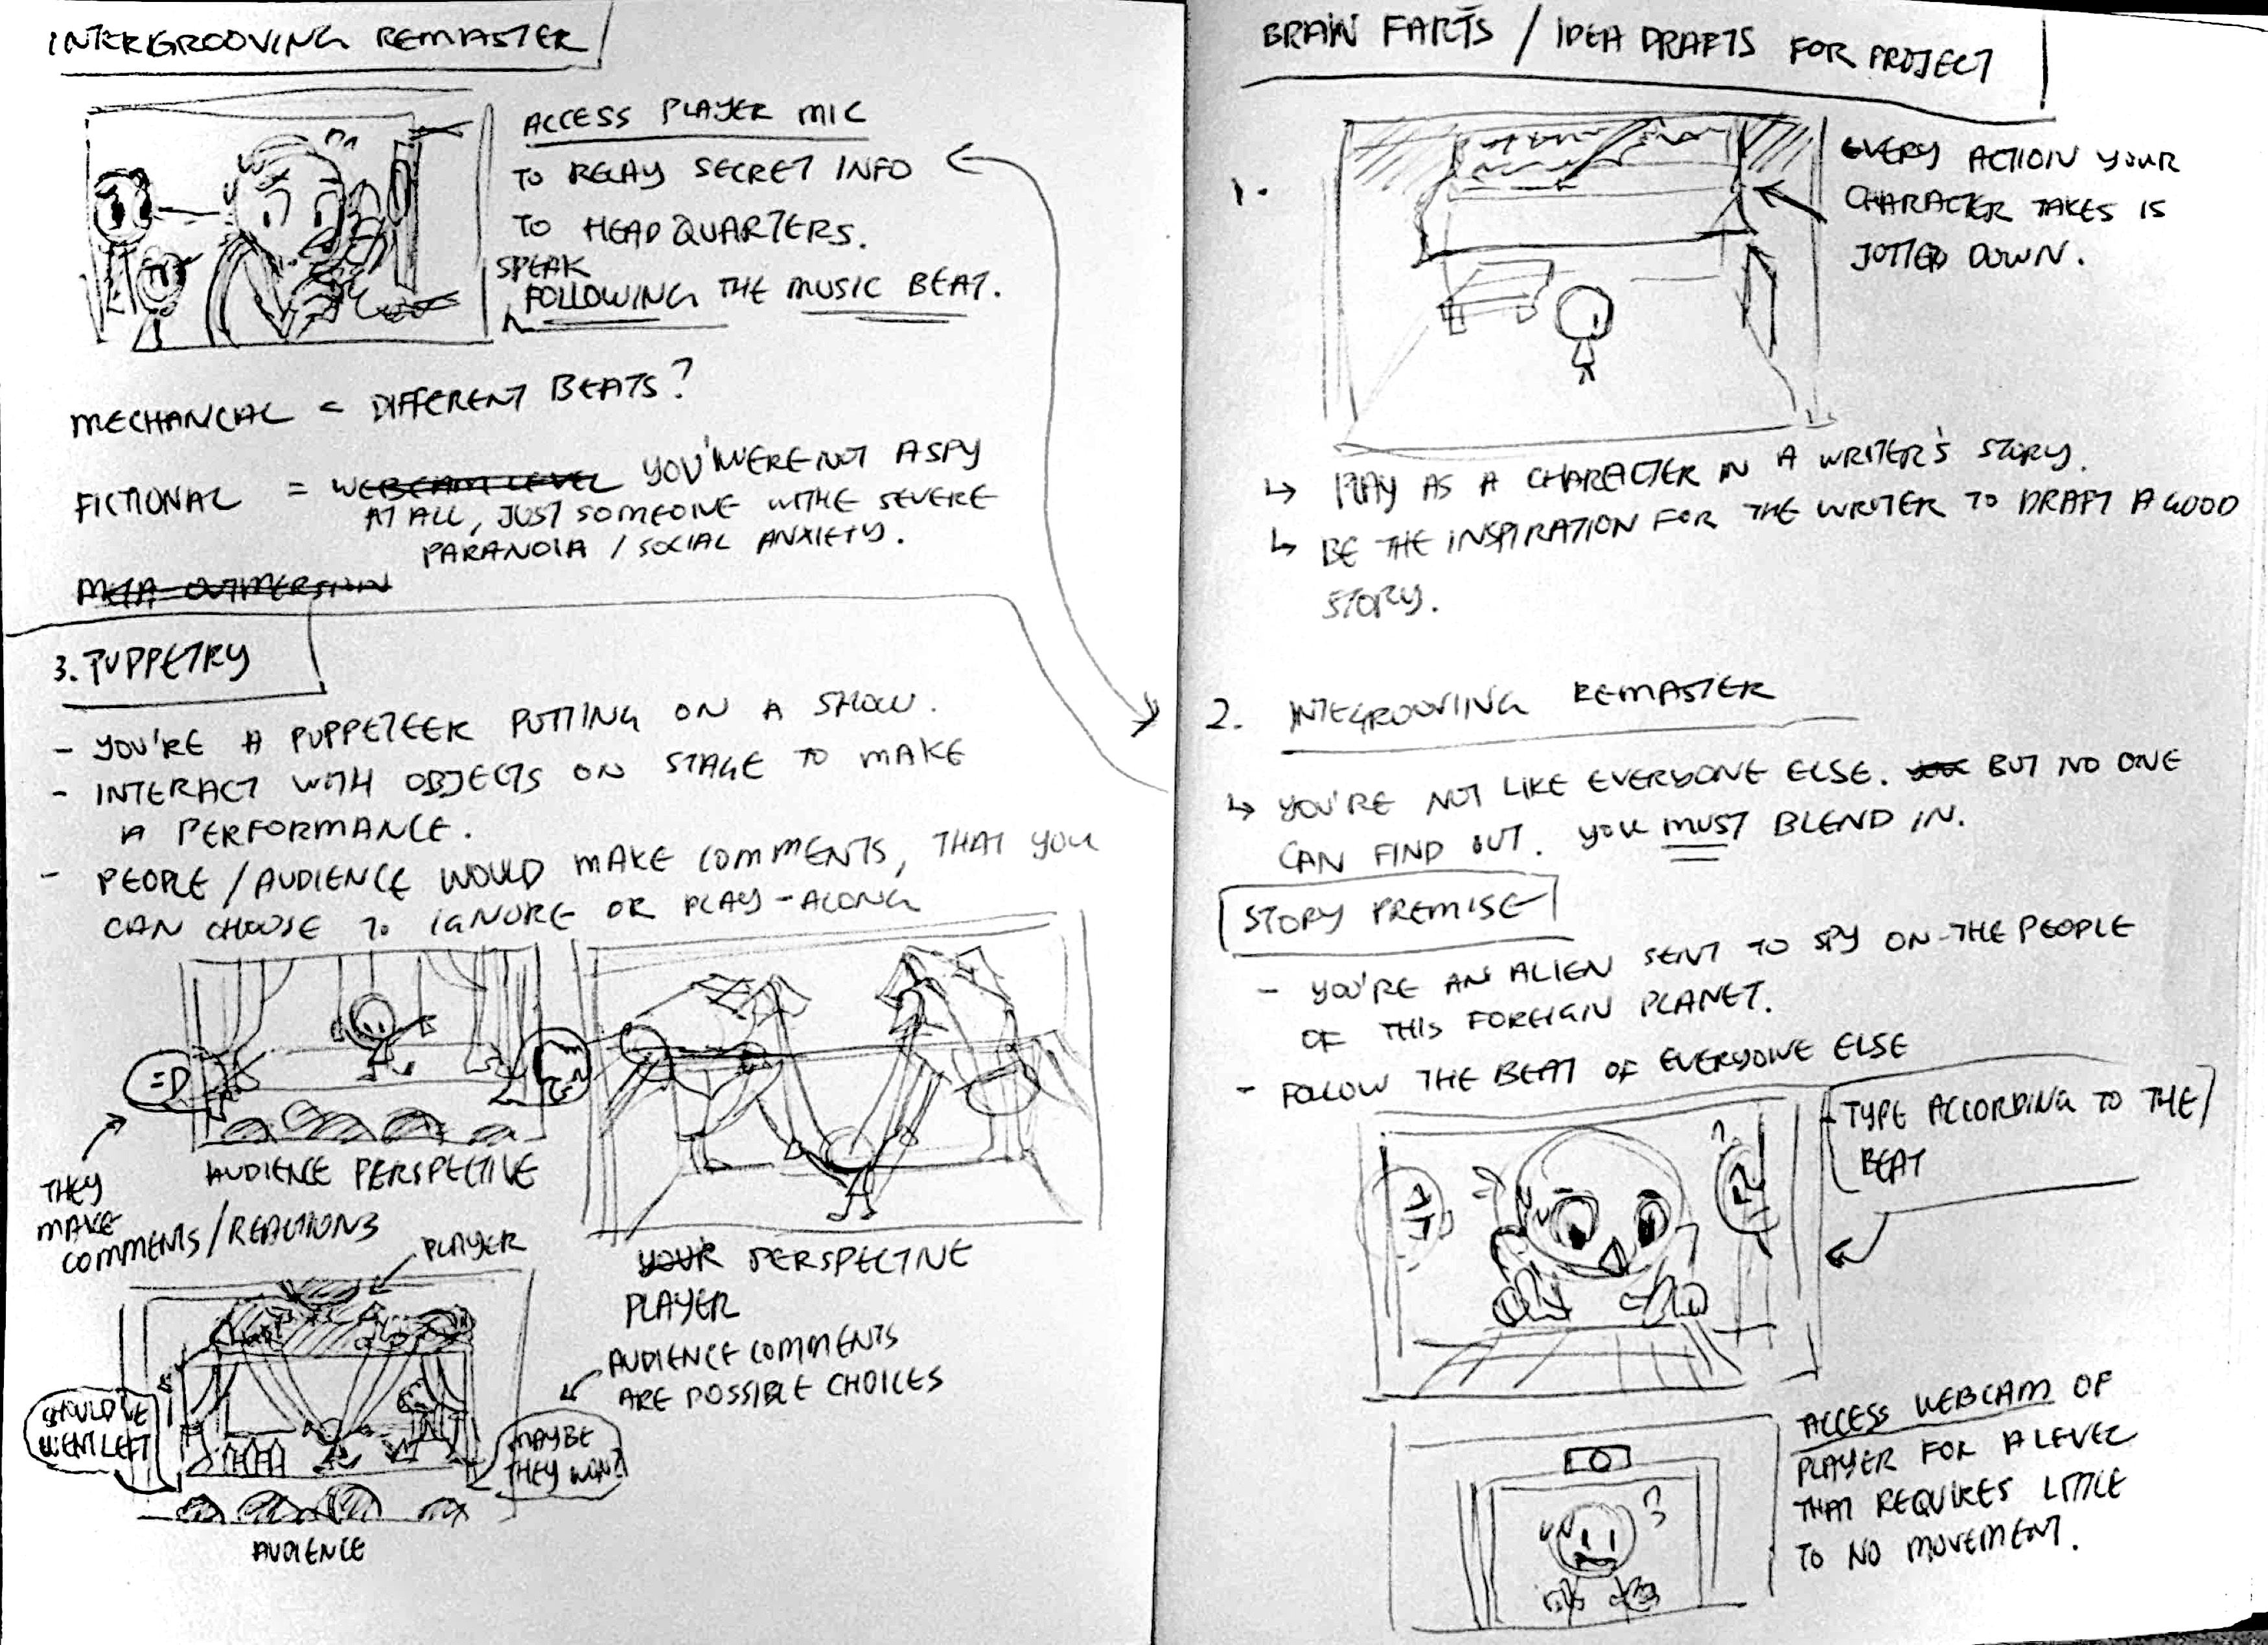 INTERGROOVING REMASTER
ACCESS PLAYER MIC
TO RELAY SECRET INFO
TO HEAD QUARTERS.
SPEAK
FOLLOWING THE MUSIC BEAT.
MECHANCIAL = DIFFERENT BEATS?
FICTIONAL = WEBCAM LEVEL YOU WERE NOT A SPY
AT ALL, JUST SOMEONE WITHE SEVERE
PARANOIA / SOCIAL ANXIETY.
3. PUPPETRY
- YOU'RE A PUPPETEER PUTTING ON A SHOW.
- INTERACT WITH OBJECTS ON STAGE TO MAKE
A PERFORMANCE.
- PEOPLE / AUDIENCE WOULD MAKE COMMENTS, THAT YOU
CAN CHOOSE TO IGNORE OR PLAY-ALONG
=D
AUDIENCE PERSPECTIVE
THEY
MAKE
COMMENTS/REACTIONS
YOUR PERSPECTIVE
PLAYER
AUDIENCE COMMENTS
ARE POSSIBLE CHOICES
PLAYER
SHOULD'VE
WENT LEFT
MAYBE
THEY
AUDIENCE
BRAIN FARTS / IDEA DRAFTS FOR PROJECT
1.
EVERY ACTION YOUR
CHARACTER TAKES IS
JOTTED DOWN.
↳ PLAY AS A CHARACTER IN A WRITER'S STORY.
↳ BE THE INSPIRATION FOR THE WRITER TO DRAFT A GOOD
STORY.
2. INTEGROOVING REMASTER
↳ YOU'RE NOT LIKE EVERYONE ELSE. BUT NO ONE
CAN FIND OUT. YOU MUST BLEND IN.
STORY PREMISE
- YOU'RE AN ALIEN SENT TO SPY ON THE PEOPLE
OF THIS FOREIGN PLANET.
- FOLLOW THE BEAT OF EVERYONE ELSE
- TYPE ACCORDING TO THE
BEAT
ACCESS WEBCAM OF
PLAYER FOR A LEVEL
THAT REQUIRES LITTLE
TO NO MOVEMENT.